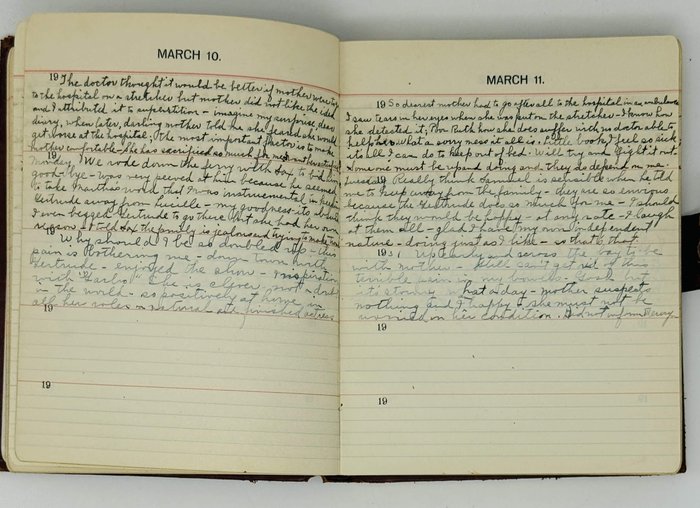 MARCH 10.
19 The doctor thought it would be better if mother went
to the hospital on a stretcher but mother did not like the idea
and I attributed it to superstition - imagine my surprise, dear
diary, when later, darling mother told me she feared she would
get worse at the hospital. The most important factor is to make
mother comfortable - She has sacrificed so much for me
19 Monday, We rode down the ferry with to bid him
good-bye - was very peeved at him because he seemed
to take Martha's word that I was instrumental in keeping
Gertrude away from Lucille - my goodness its absurd
I even begged Gertrude to go there but she had her own
reasons - told the family is jealous and trying to make
19 Why should I be so doubled up - this
pain is bothering me - down town with
Gertrude - enjoyed the show - Inspiration
with Garbo. She is clever, most
in the world - so positively at home in
all her roles - natural - and finished actress
19
19
MARCH 11.
19 So dearest mother had to go after all to the hospital in an ambulance
I saw tears in her eyes when she was put on the stretcher - I know how
she detested it; Poor Ruth how she does suffer with no doctor able to
help her - what a sorry mess it all is. Little book I feel so sick
its all I can do to keep out of bed. Will try and fight it out
Some one must be up and doing and they do depend on me.
19 Really think Samuel is sensible when he told
me to keep away from the family - they are so envious
because the Gertrude does so much for me - I should
think they would be happy - at any rate - I laugh
at them all - glad I have my own independent
nature - doing just as I like - so that's that.
1931 Up early and across the bay to be
with mother - Gee, can't get rid of this
terrible pain in my bowels
its stormy. What a day - mother suspects
nothing and I happy - she must not be
worried on her condition. Did not inform
19
19